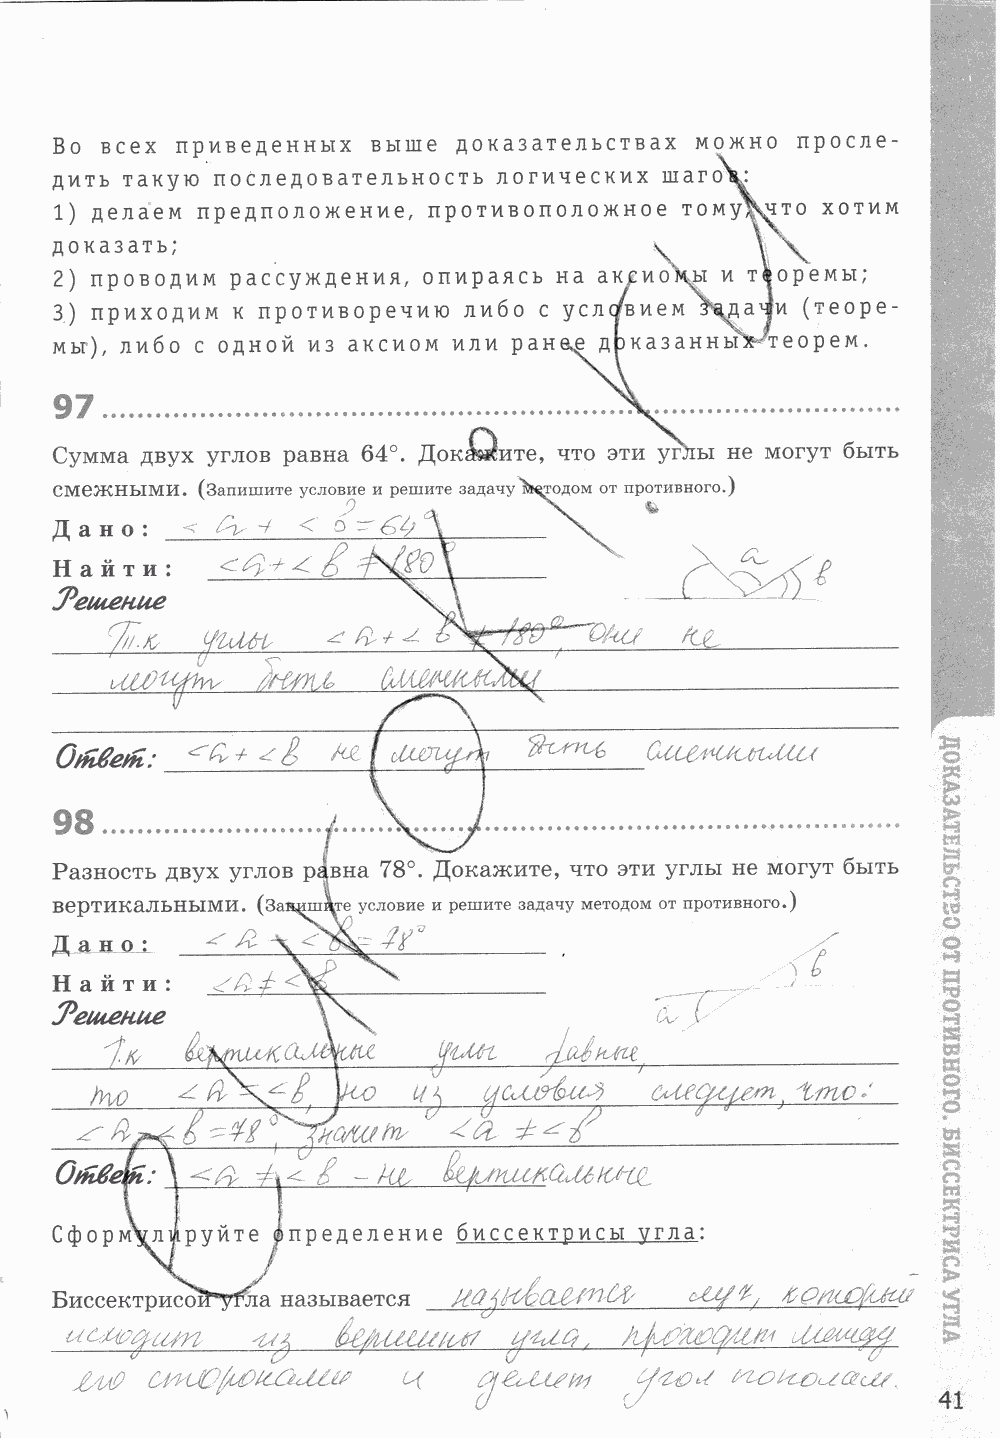 Во всех приведенных выше доказательствах можно просле-
дить такую последовательность логических шагов:
1) делаем предположение, противоположное тому, что хотим
доказать;
2) проводим рассуждения, опираясь на аксиомы и теоремы;
3) приходим к противоречию либо с условием задачи (теоре-
мы), либо с одной из аксиом или ранее доказанных теорем.
97
Сумма двух углов равна 64°. Докажите, что эти углы не могут быть
смежными. (Запишите условие и решите задачу методом от противного.)
Дано: <a + <b = 64°
Найти: <a + <b ≠ 180°
a
b
Решение
Т.к углы <a + <b ≠ 180°, они не
могут быть смежными
Ответ: <a + <b не могут быть смежными
98
Разность двух углов равна 78°. Докажите, что эти углы не могут быть
вертикальными. (Запишите условие и решите задачу методом от противного.)
Дано: <a - <b = 78°
Найти: <a ≠ <b
a
b
Решение
Т.к вертикальные углы равные,
то <a = <b, но из условия следует, что:
<a - <b = 78°, значит <a ≠ <b
Ответ: <a ≠ <b - не вертикальные
Сформулируйте определение биссектрисы угла:
Биссектрисой угла называется называется луч, который
исходит из вершины угла, проходит между
его сторонами и делит угол пополам.
ДОКАЗАТЕЛЬСТВО ОТ ПРОТИВНОГО. БИССЕКТРИСА УГЛА
41